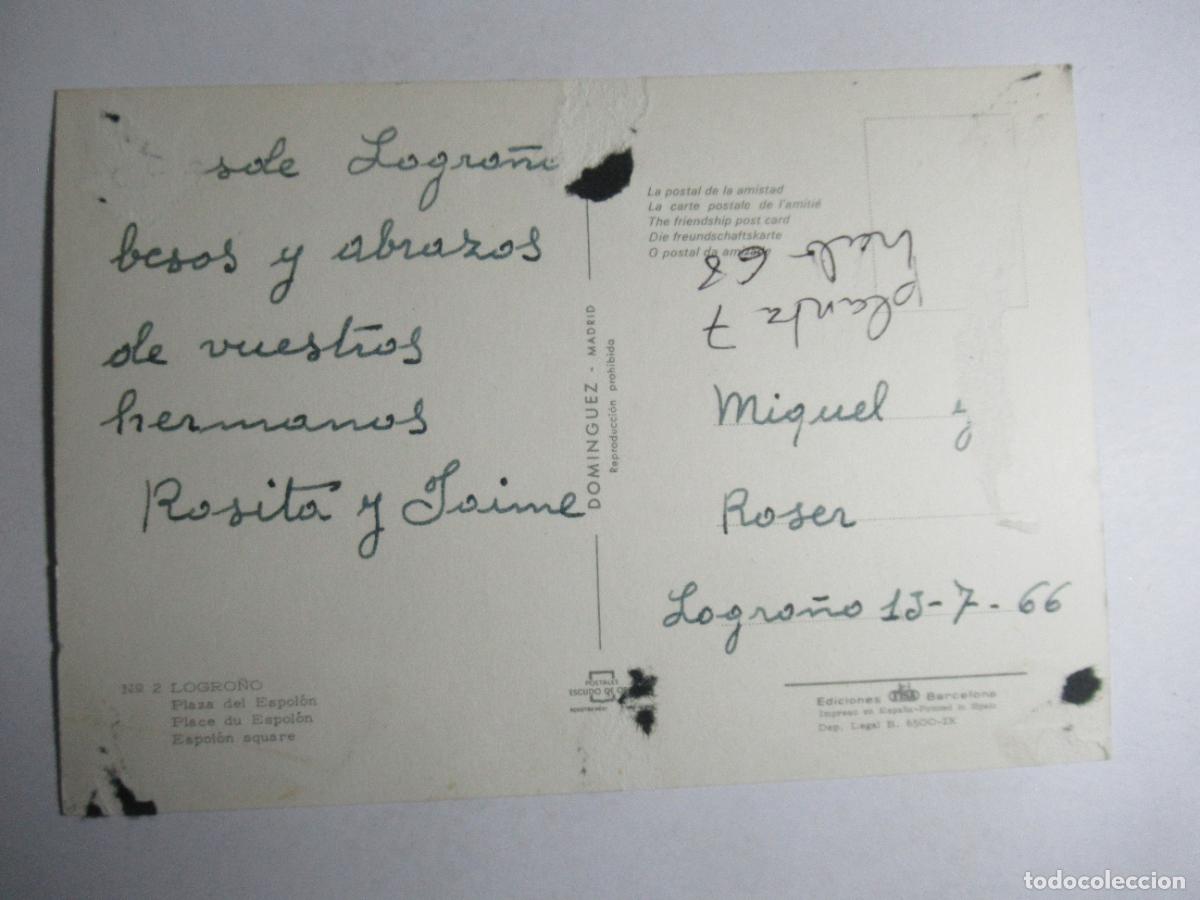 sde Logroño
besos y abrazos
de vuestros
hermanos
Rosita y Jaime
Nº 2 LOGROÑO
Plaza del Espolón
Place du Espolón
Espolón square
DOMINGUEZ - MADRID
Reproducción prohibida
POSTALES
ESCUDO DE
La postal de la amistad
La carte postale de l'amitié
The friendship post card
Die freundschaftskarte
O postal da amizade
planta 7
hab 68
Miguel y
Roser
Logroño 13-7-66
Ediciones Barcelona
Impreso en España-Printed in Spain
Dep. Legal B. 6500-IX
todocoleccion